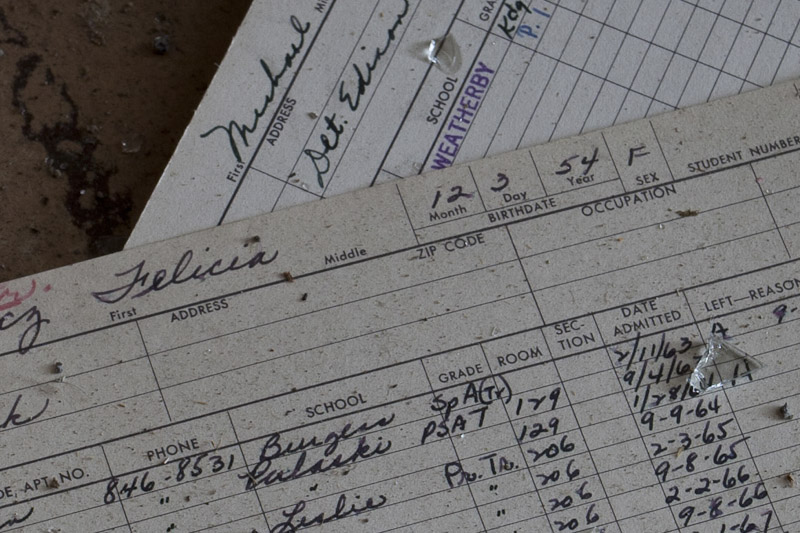 Michael
First
ADDRESS
Det. Edison
SCHOOL
WEATHERBY
GRA
Kdg
P. 1.
12 3 54 F
Month Day Year SEX STUDENT NUMBER
BIRTHDATE
cz Felicia
First Middle ZIP CODE OCCUPATION
ADDRESS
DE, APT. NO. PHONE SCHOOL GRADE ROOM SEC-TION DATE ADMITTED LEFT—REASON
846-8531 Burgess Sp A(Tr) 129 2/11/63 A 9-
" Pulaski PSAT 129 9/4/6
Pr. Tr. 206 1/28/6
" Leslie " 206 9-9-64
206 2-3-65
206 9-8-65
2-2-66
9-8-66
1-67